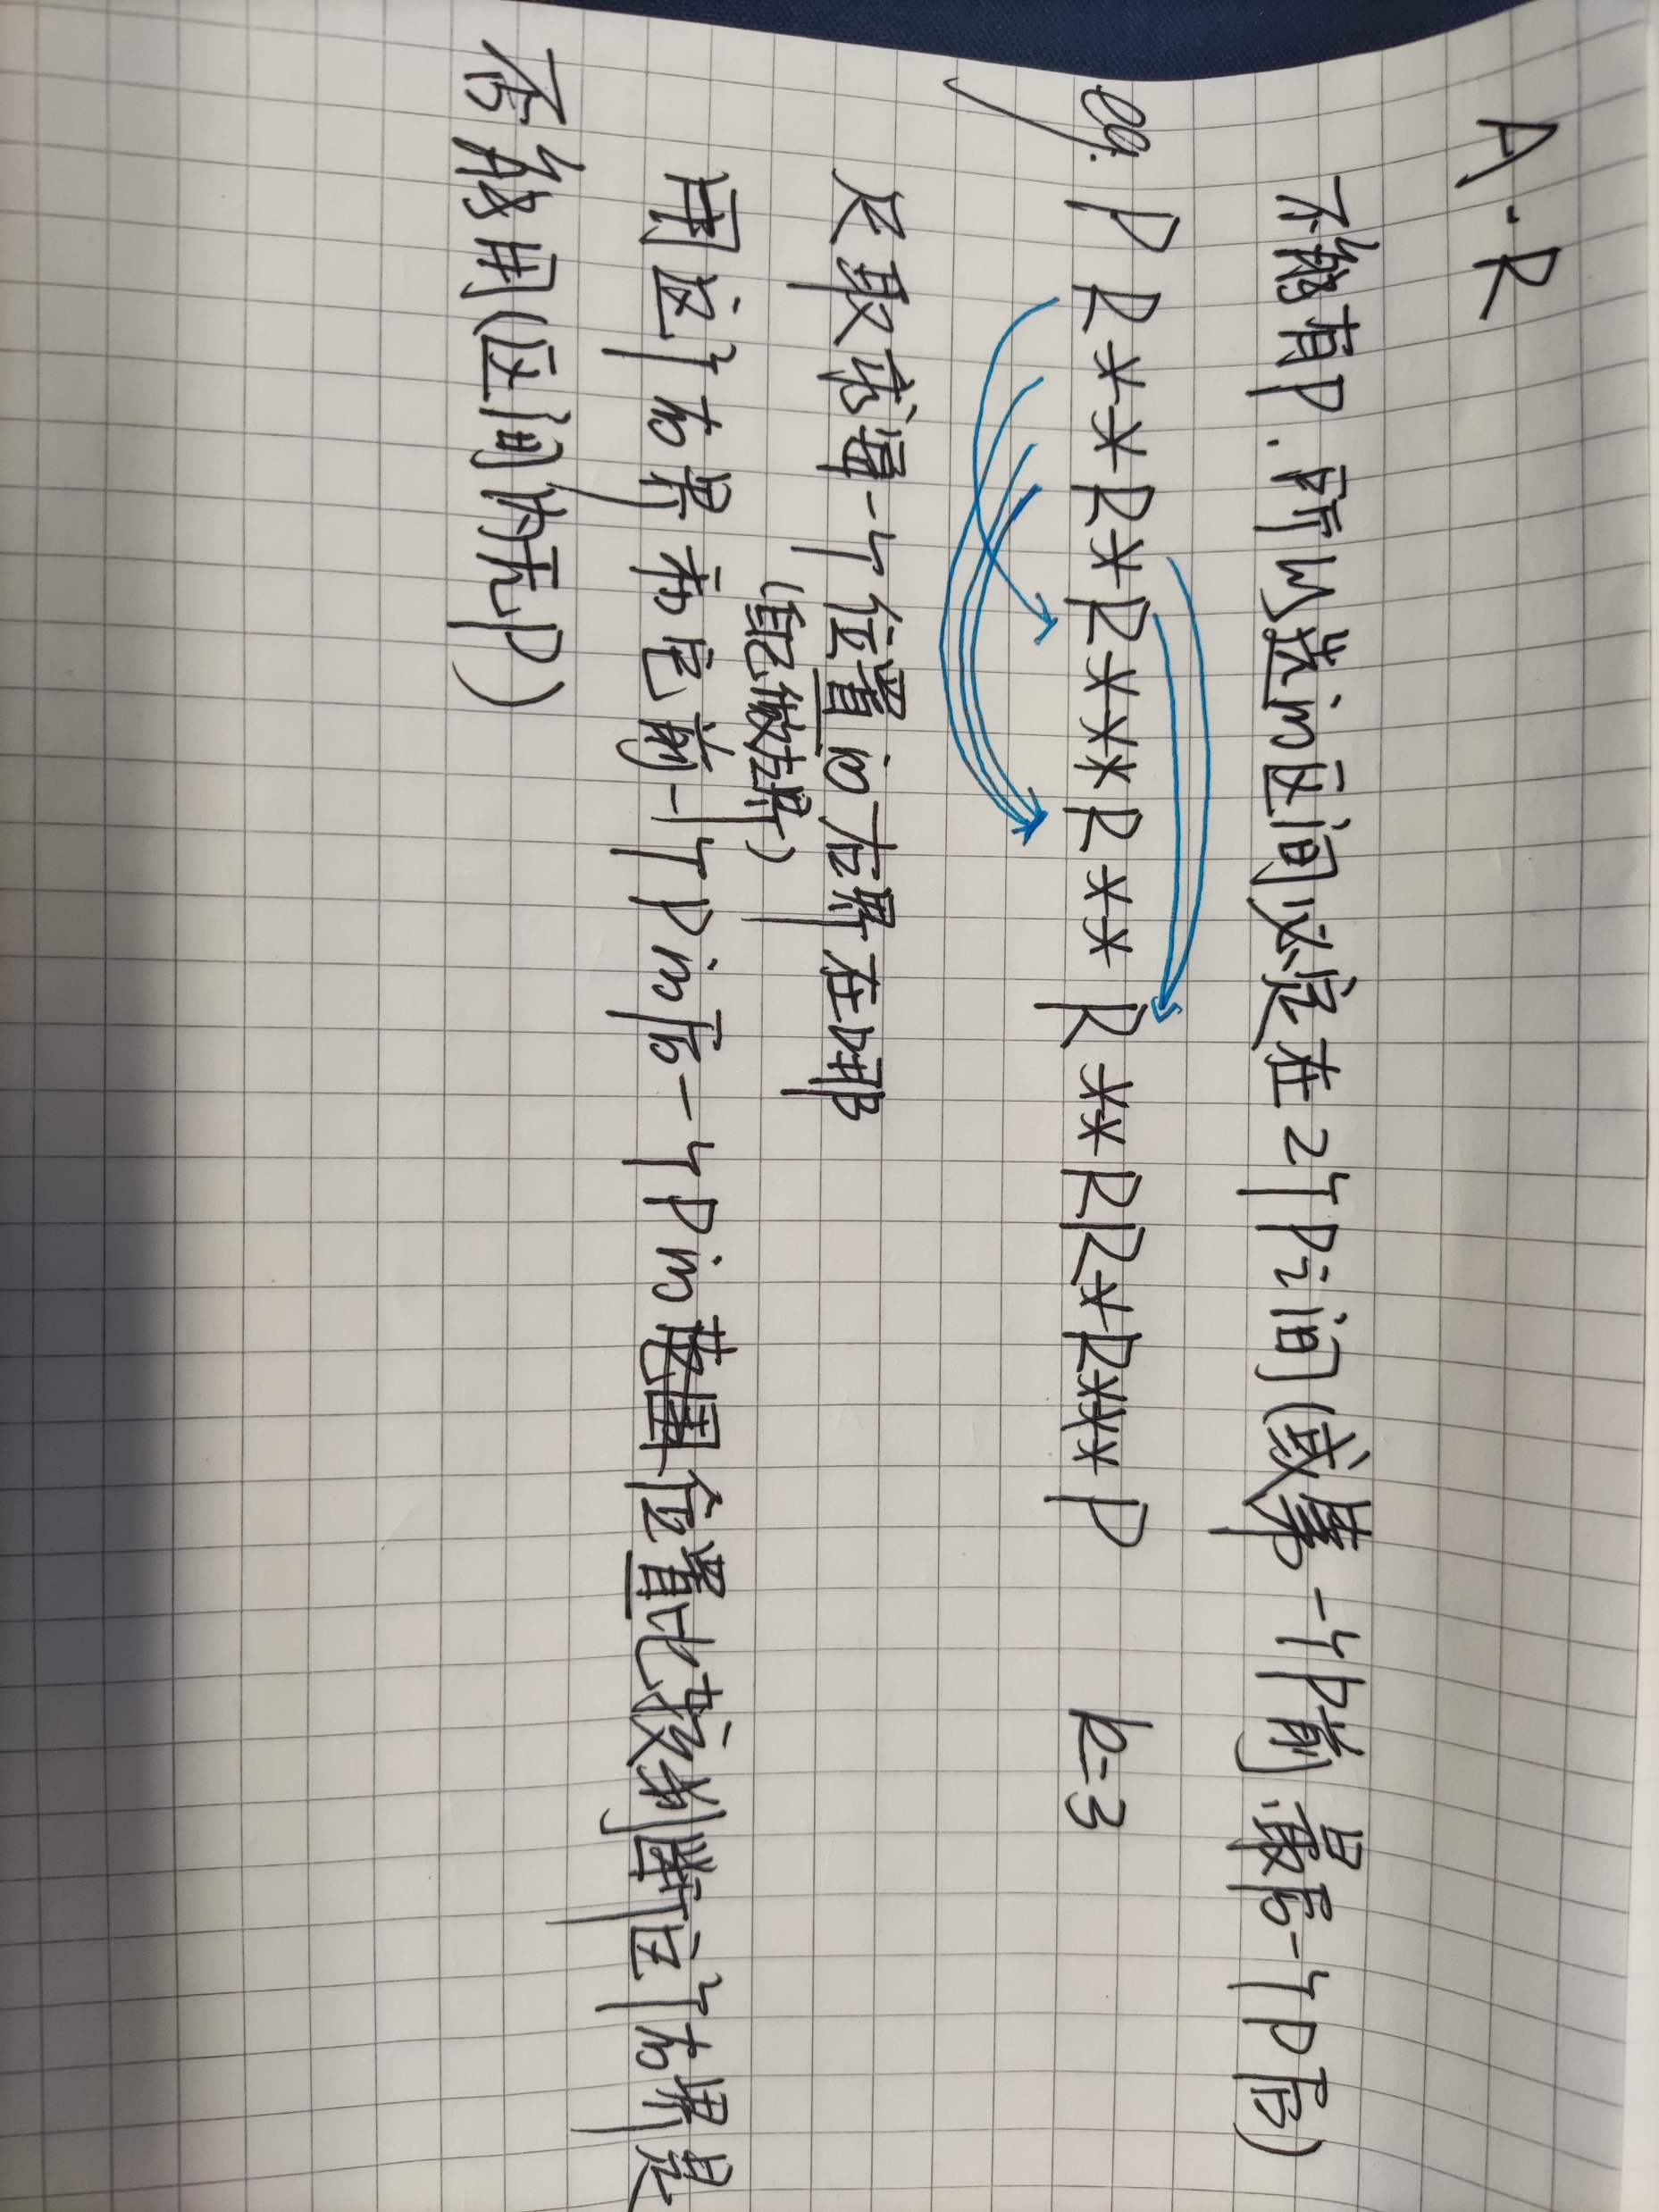 A.R
不能有P.所以选的区间必定在2个P之间(或第一个P前 最后一个P后)
eg. P R**R*R***R** R**RR*R***P k=3
只取决每一个位置的右界在哪
(自己做左界)
用这个右界和它前一个P的后一个P的范围位置比较判断这个右界是
否能用(区间内无P)